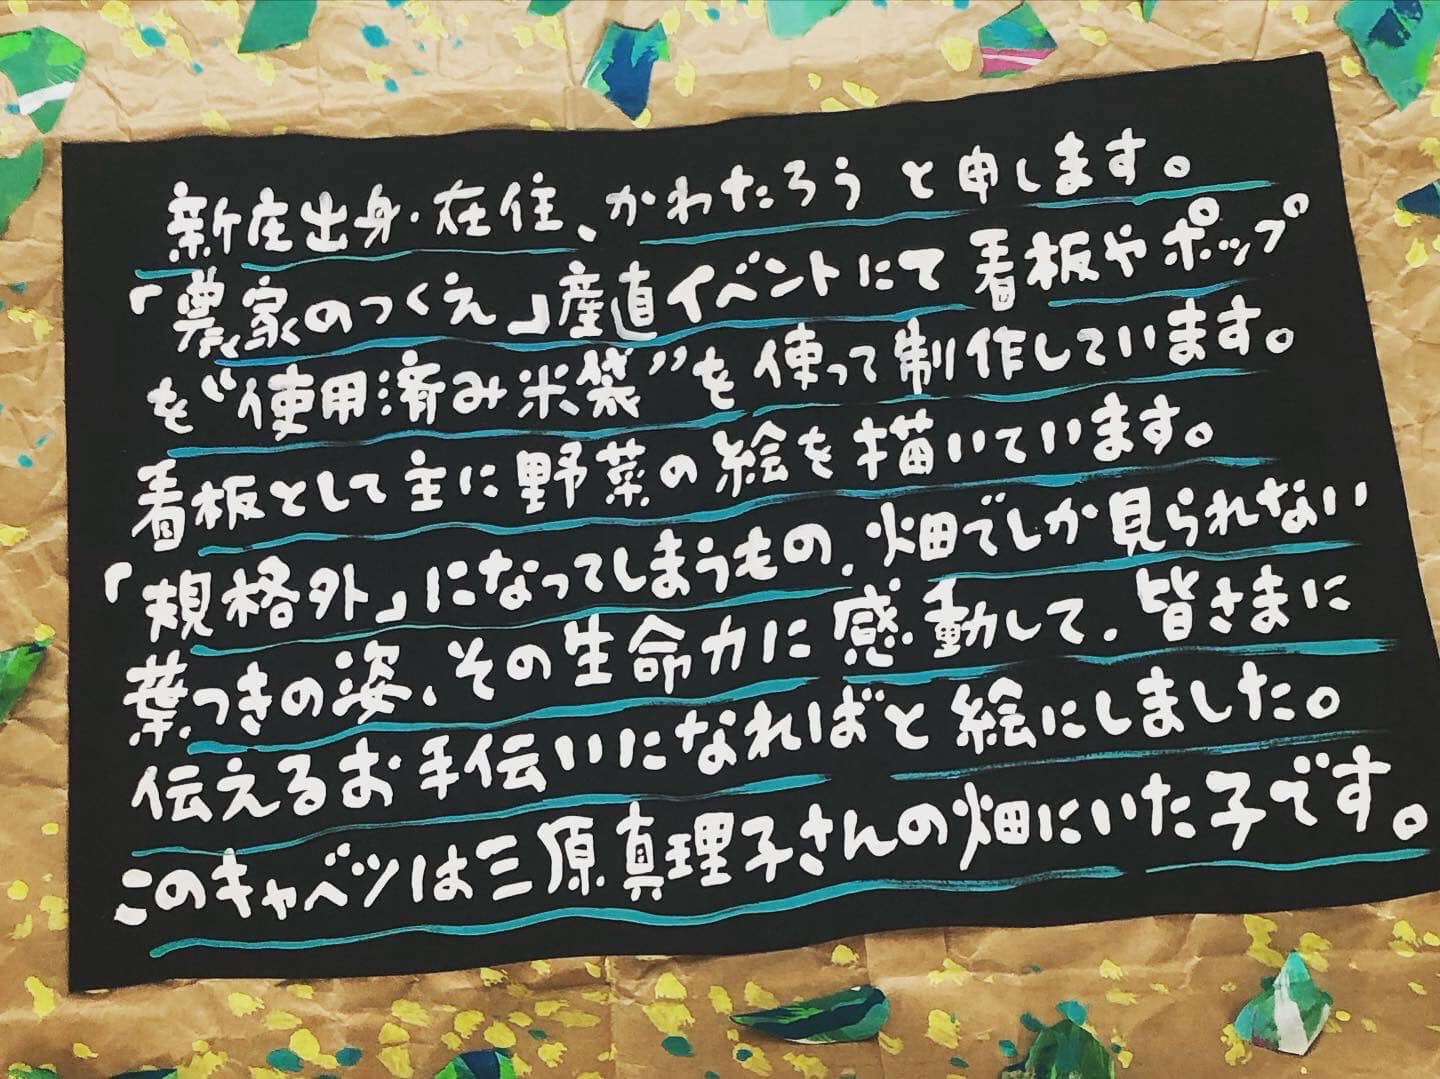 新庄出身・在住、かわたろう と申します。
「農家のつくえ」産直イベントにて 看板やポップ
を“使用済み米袋”を使って制作しています。
看板として主に野菜の絵を描いています。
「規格外」になってしまうもの、畑でしか見られない
葉つきの姿、その生命力に感動して、皆さまに
伝えるお手伝いになればと絵にしました。
このキャベツは三原真理子さんの畑にいた子です。